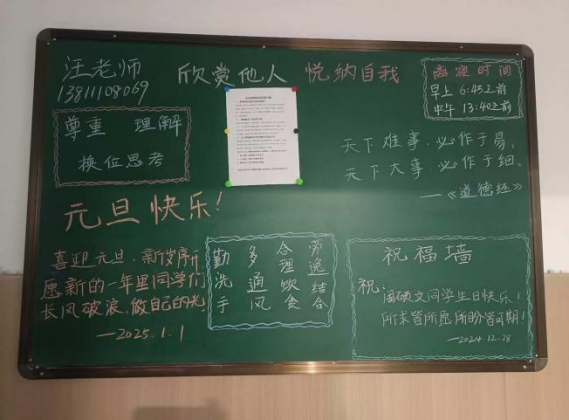 汪老师
13811108069
欣赏他人 悦纳自我
离寝时间
早上 6:45之前
中午 13:40之前
尊重 理解
换位思考
天下难事,必作于易,
天下大事,必作于细。
——《道德经》
元旦快乐!
喜迎元旦,新岁序开
愿新的一年里同学们
长风破浪,做自己的光
—2025.1.1
勤洗手
多通风
合理饮食
劳逸结合
祝福墙
祝:
周硕文同学生日快乐!
所求皆所愿,所盼皆可期!
—2024.12.28